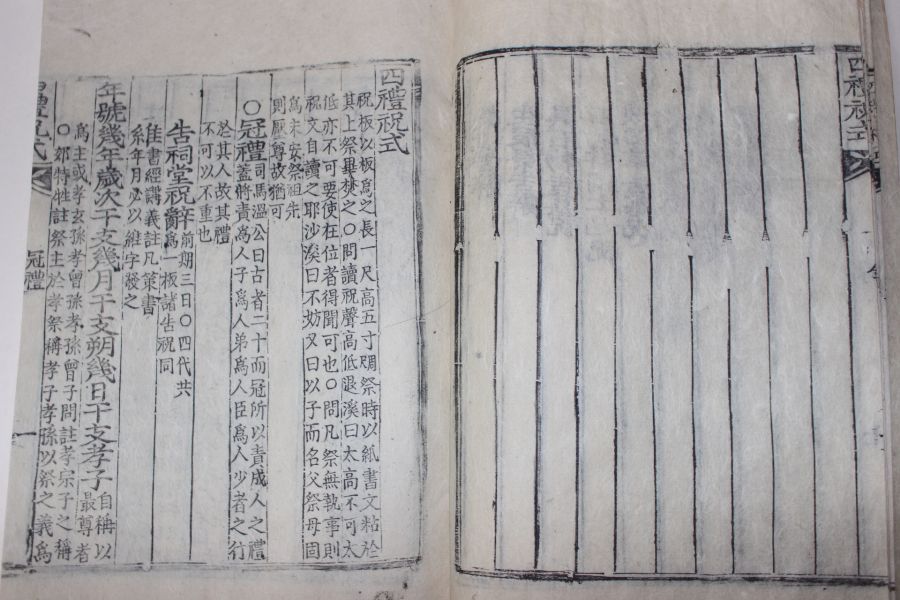 四禮祝式
四禮祝式
祝板以板爲之長一尺高五寸周祭時以紙書文粘於
其上祭畢焚之〇問讀祝聲高低退溪曰太高不可太
低亦不可要使在位者得聞可也〇問凡祭無執事則
祝文自讀之耶沙溪曰不妨又曰以子而名父祭母固
爲未安祭祖先
則厭尊故猶可
〇冠禮
司馬溫公曰古者二十而冠所以責成人之禮
蓋將責爲人子爲人弟爲人臣爲人少者之行
於其人故其禮
不可以不重也
告祠堂祝辭
前期三日〇四代共
爲一板諸告祝同
維
書經講義註凡策書
系年月必以維字發之
年號幾年歲次干支幾月干支朔幾日干支孝子
自稱以
最尊者
爲主或孝玄孫孝曾孫孝孫曾子問註孝宗子之稱
〇郊特牲註祭主於孝祭稱孝子孝孫以祭之義爲
冠禮
一